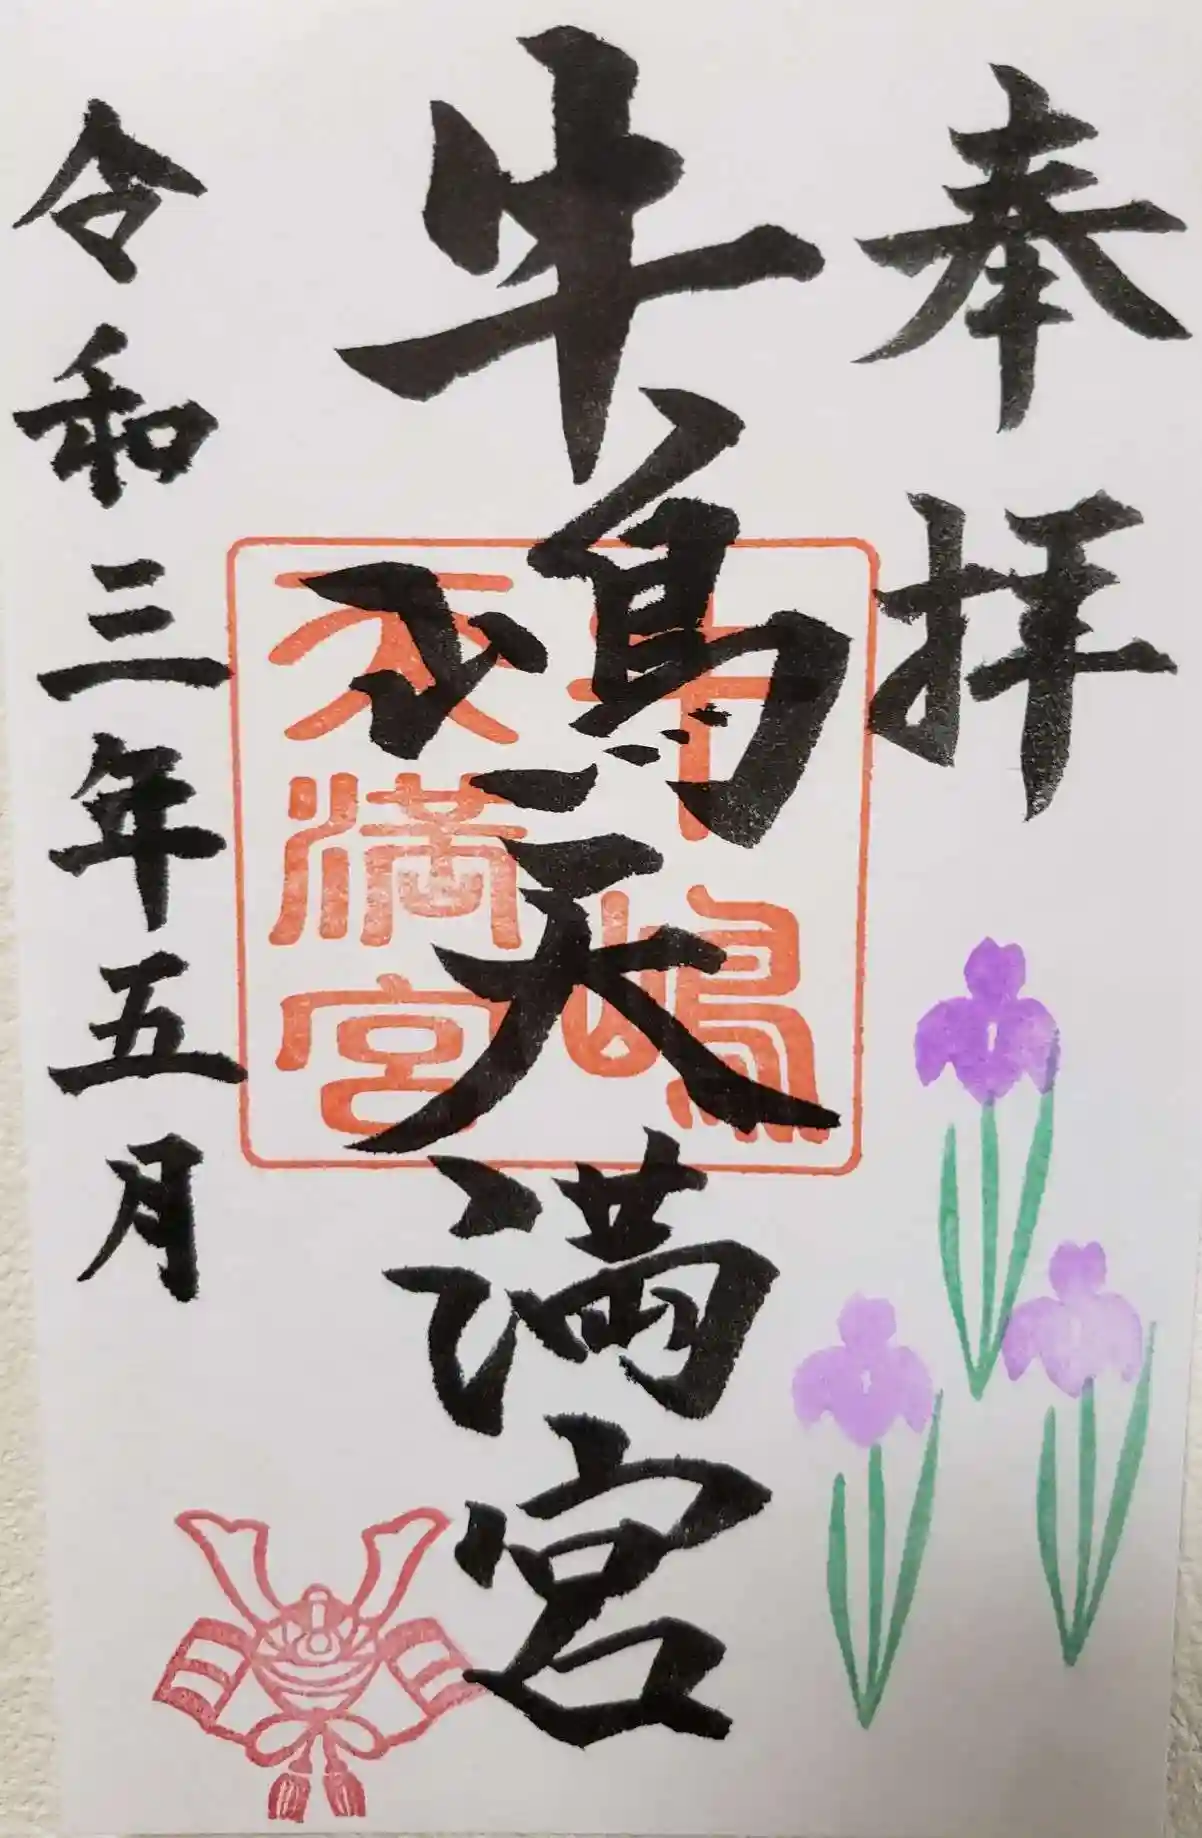 奉拝
牛嶋天満宮
牛嶋
天満宮
令和三年五月